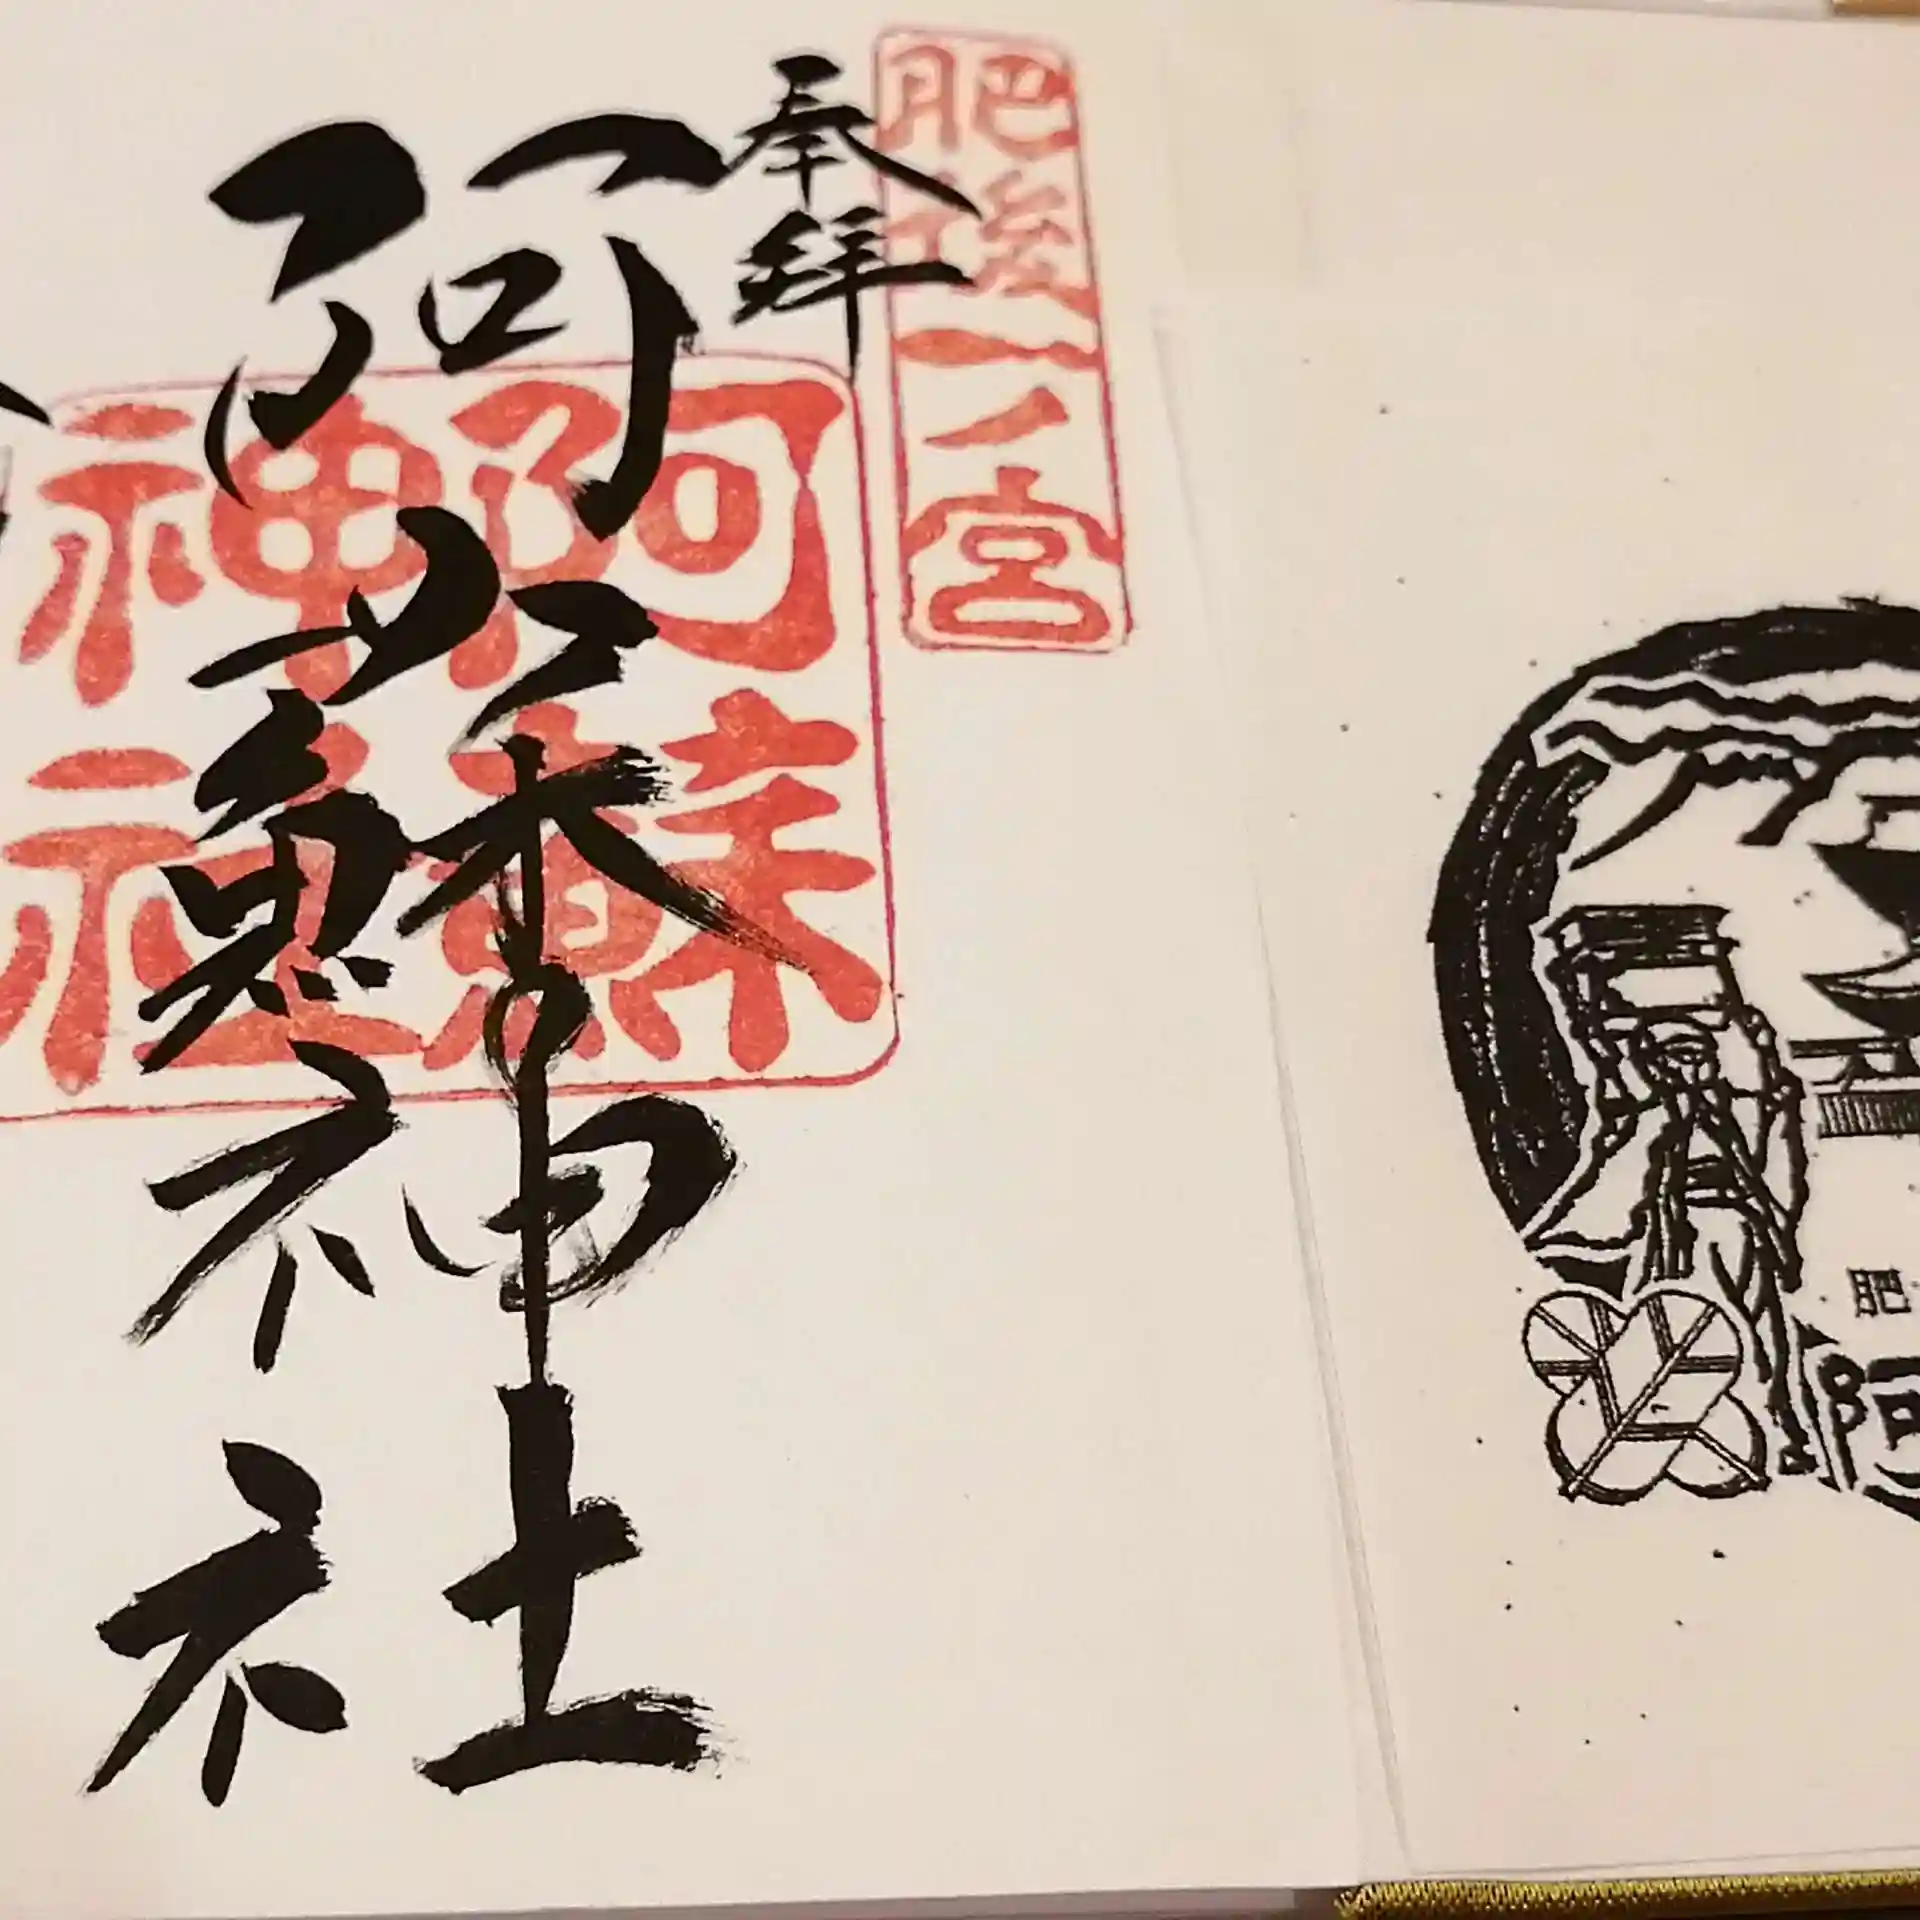 肥後一ノ宮
奉拝
阿蘇神社
阿蘇
神社
肥
阿